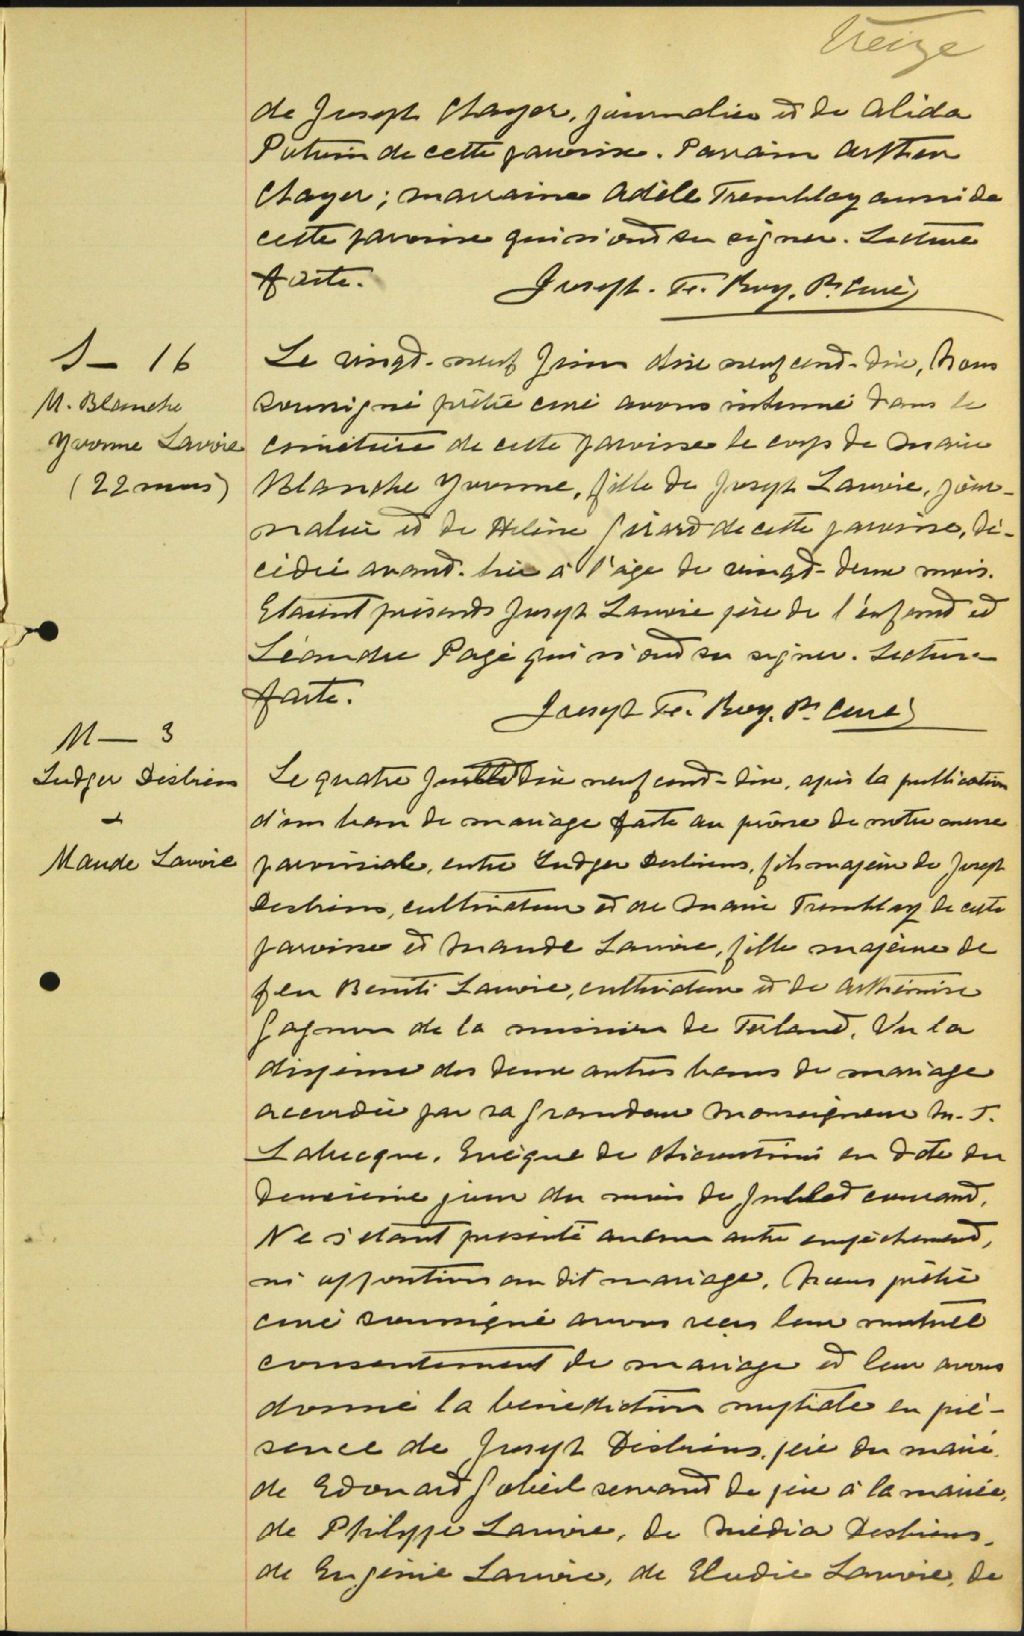 Treize
de Joseph Chayer, journalier et de Alida
Potvin de cette paroisse. Parrain Arthur
Chayer; marraine Adèle Tremblay aussi de
cette paroisse qui n'ont su signer. Lecture
faite. Joseph. Ts. Roy. Ptr Curé
S — 16
M. Blanche
Yvonne Lavoie
(22 mois)
Le vingt-neuf Juin dix neuf cent-dix, Nous
soussigné prêtre curé avons inhumé dans le
cimetière de cette paroisse le corps de Marie
Blanche Yvonne, fille de Joseph Lavoie, jour-
nalier et de Hélène Girard de cette paroisse, dé-
cédée avant-hier à l'âge de vingt-deux mois.
Etaient présents Joseph Lavoie père de l'enfant et
Léandre Pagé qui n'ont su signer. Lecture
faite. Joseph Ts. Roy. Ptr Curé
M — 3
Ludger Desbiens
+
Maude Lavoie
Le quatre Juillet dix neuf cent-dix, après la publication
d'un ban de mariage faite au prône de notre messe
paroissiale, entre Ludger Desbiens, fils majeur de Joseph
Desbiens, cultivateur et de Marie Tremblay de cette
paroisse et Maude Lavoie, fille majeure de
feu Benoit Lavoie, cultivateur et de Arthémise
Gagnon de la mission de Ferland. Vu la
dispense des deux autres bans de mariage
accordée par sa Grandeur Monseigneur M. T.
Labrecque, Evêque de Chicoutimi en date du
deuxième jour du mois de Juillet courant,
Ne s'étant présenté aucun autre empêchement,
ni opposition au dit mariage, Nous prêtre
curé soussigné avons reçu leur mutuel
consentement de mariage et leur avons
donné la bénédiction nuptiale en pré-
sence de Joseph Desbiens, père du marié,
de Edouard Gobeil servant de père à la mariée,
de Philippe Lavoie, de Média Desbiens,
de Eugénie Lavoie, de Elodie Lavoie, de